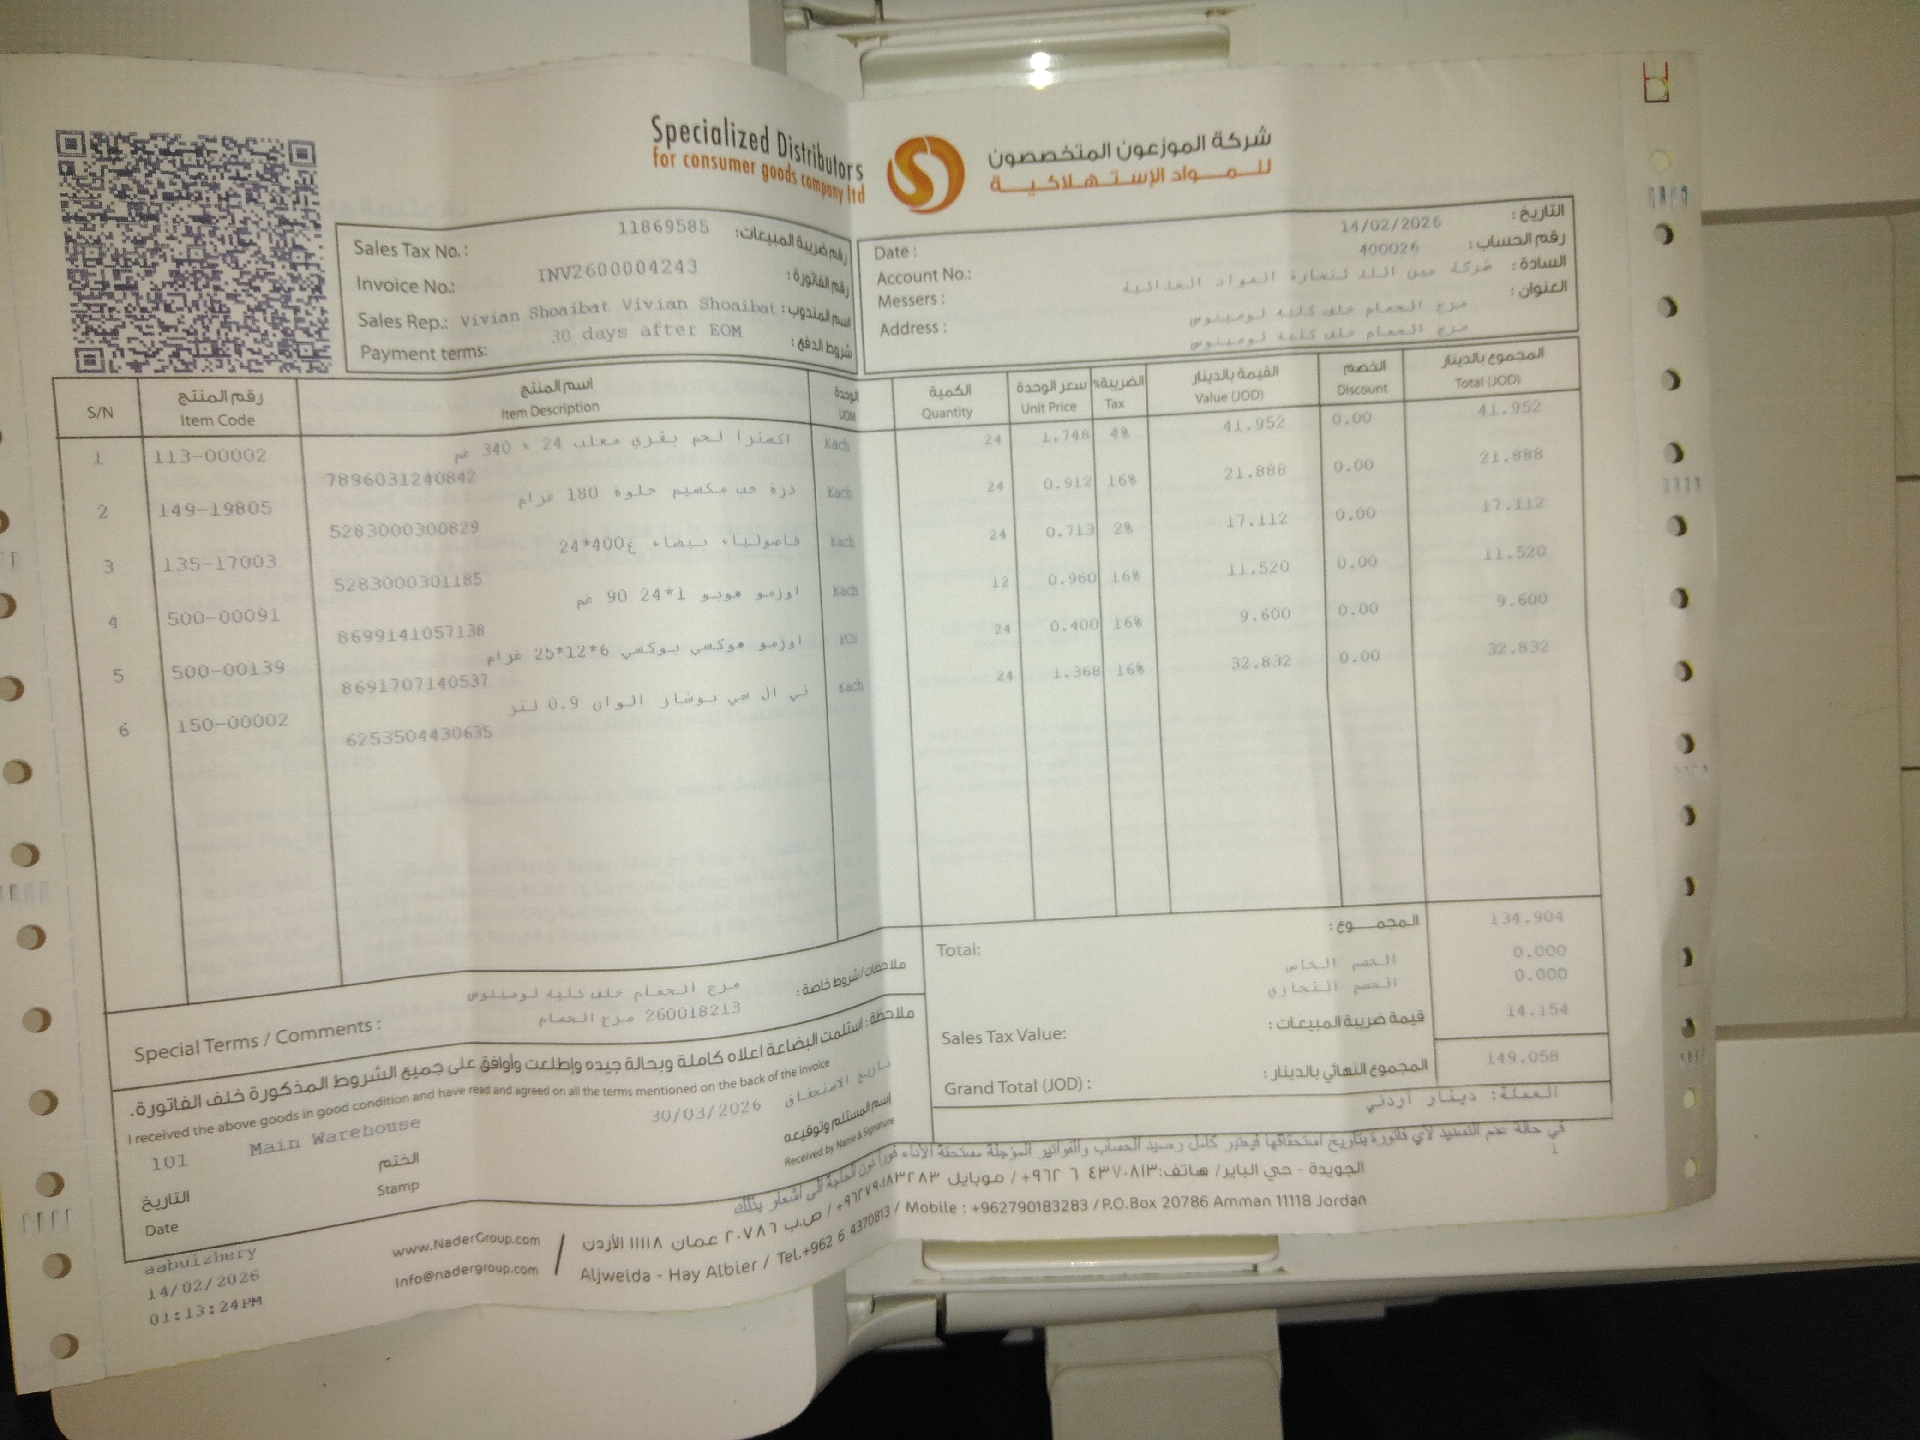 Specialized Distributors
for consumer goods company ltd
شركة الموزعون المتخصصون
للمواد الإستهلاكية
Sales Tax No.: 11869585 رقم ضريبة المبيعات:
Invoice No.: INV2600004243 رقم الفاتورة:
Sales Rep.: Vivian Shoaibat Vivian Shoaibat اسم المندوب:
Payment terms: 30 days after EOM شروط الدفع:
Date : 14/02/2026 التاريخ:
Account No.: 400026 رقم الحساب:
Messers : شركة عين الله لتجارة المواد الغذائية السادة:
Address : مرج الحمام خلف كلية لومينوس العنوان:
مرج الحمام خلف كلية لومينوس
S/N رقم المنتج اسم المنتج الوحدة الكمية سعر الوحدة الضريبة% القيمة بالدينار الخصم المجموع بالدينار
Item Code Item Description UOM Quantity Unit Price Tax Value (JOD) Discount Total (JOD)
1 113-00002 اكسترا لحم بقري معلب 24 × 340 غم Each 24 1.748 4% 41.952 0.00 41.952
7896031240842
2 149-19805 ذرة حب مكسيم حلوة 180 غرام Each 24 0.912 16% 21.888 0.00 21.888
5283000300829
3 135-17003 فاصولياء بيضاء 24*400غ Each 24 0.713 2% 17.112 0.00 17.112
5283000301185
4 500-00091 اوزمو هوبو 1*24 90 غم Each 12 0.960 16% 11.520 0.00 11.520
8699141057138
5 500-00139 اوزمو هوكسي بوكسي 6*12*25 غرام PCS 24 0.400 16% 9.600 0.00 9.600
8691707140537
6 150-00002 تي ال سي بوشار الوان 0.9 لتر Each 24 1.368 16% 32.832 0.00 32.832
6253504430635
Total: المجموع: 134.904
الخصم الخاص 0.000
الخصم التجاري 0.000
Sales Tax Value: قيمة ضريبة المبيعات: 14.154
Grand Total (JOD) : المجموع النهائي بالدينار: 149.058
العملة: دينار أردني
Special Terms / Comments : مرج الحمام خلف كلية لومينوس ملاحظات/شروط خاصة:
260018213 مرج الحمام
ملاحظة: استلمت البضاعة اعلاه كاملة وبحالة جيده وإطلعت وأوافق على جميع الشروط المذكورة خلف الفاتورة.
I received the above goods in good condition and have read and agreed on all the terms mentioned on the back of the invoice
101 Main Warehouse 30/03/2026 تاريخ الاستحقاق
اسم المستلم وتوقيعه
Received by Name & Signature
التاريخ
Date
الختم
Stamp
في حالة عدم التسديد لأي فاتورة بتاريخ استحقاقها فيعتبر كامل رصيد الحساب والفواتير المؤجلة مستحقة الأداء فورا دون الحاجة الى اشعار بذلك
1
الجويدة - حي البابر/ هاتف: ٤٣٧٠٨١٣ ٦ ٩٦٢+ / موبايل ٩٦٢٧٩٠١٨٣٢٨٣+ / ص.ب ٢٠٧٨٦ عمان ١١١١٨ الأردن
Aljweida - Hay Albier / Tel.+962 6 4370813 / Mobile : +962790183283 / P.O.Box 20786 Amman 11118 Jordan
www.NaderGroup.com
Info@nadergroup.com
aabuizhery
14/02/2026
01:13:24PM